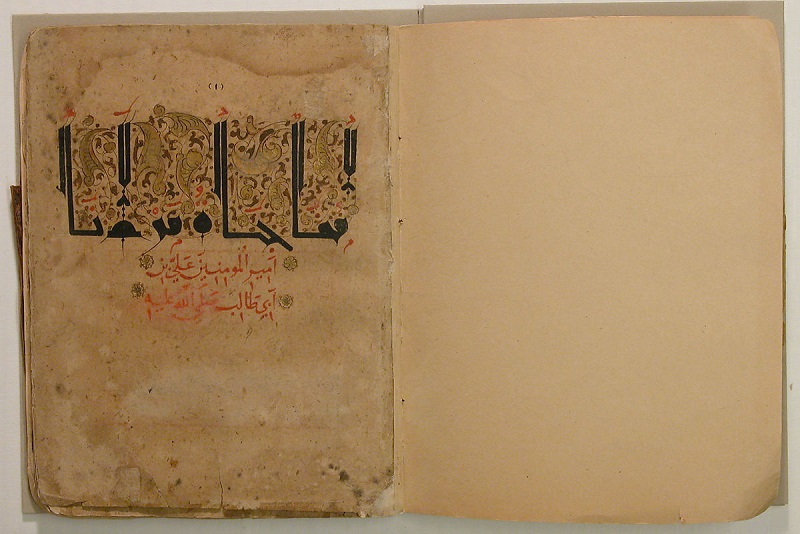 (١)
مناجاة مولانا
أمير المومنين علي بن
أبي طالب صلى الله عليه